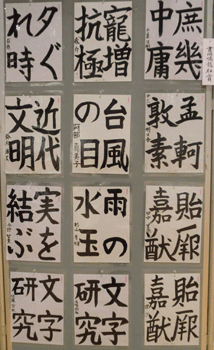 庶幾
中庸
寵増
抗極
夕ぐ
れ時
孟軻
敦素
台風
の目
近代
文明
貽厥
嘉猷
雨の
水玉
実を
結ぶ
貽厥
嘉猷
文字
研究
文字
研究